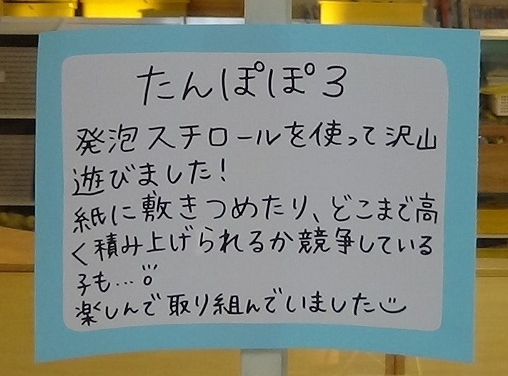 たんぽぽ3
発泡スチロールを使って沢山
遊びました!
紙に敷きつめたり、どこまで高
く積み上げられるか競争している
子も…!!
楽しんで取り組んでいました